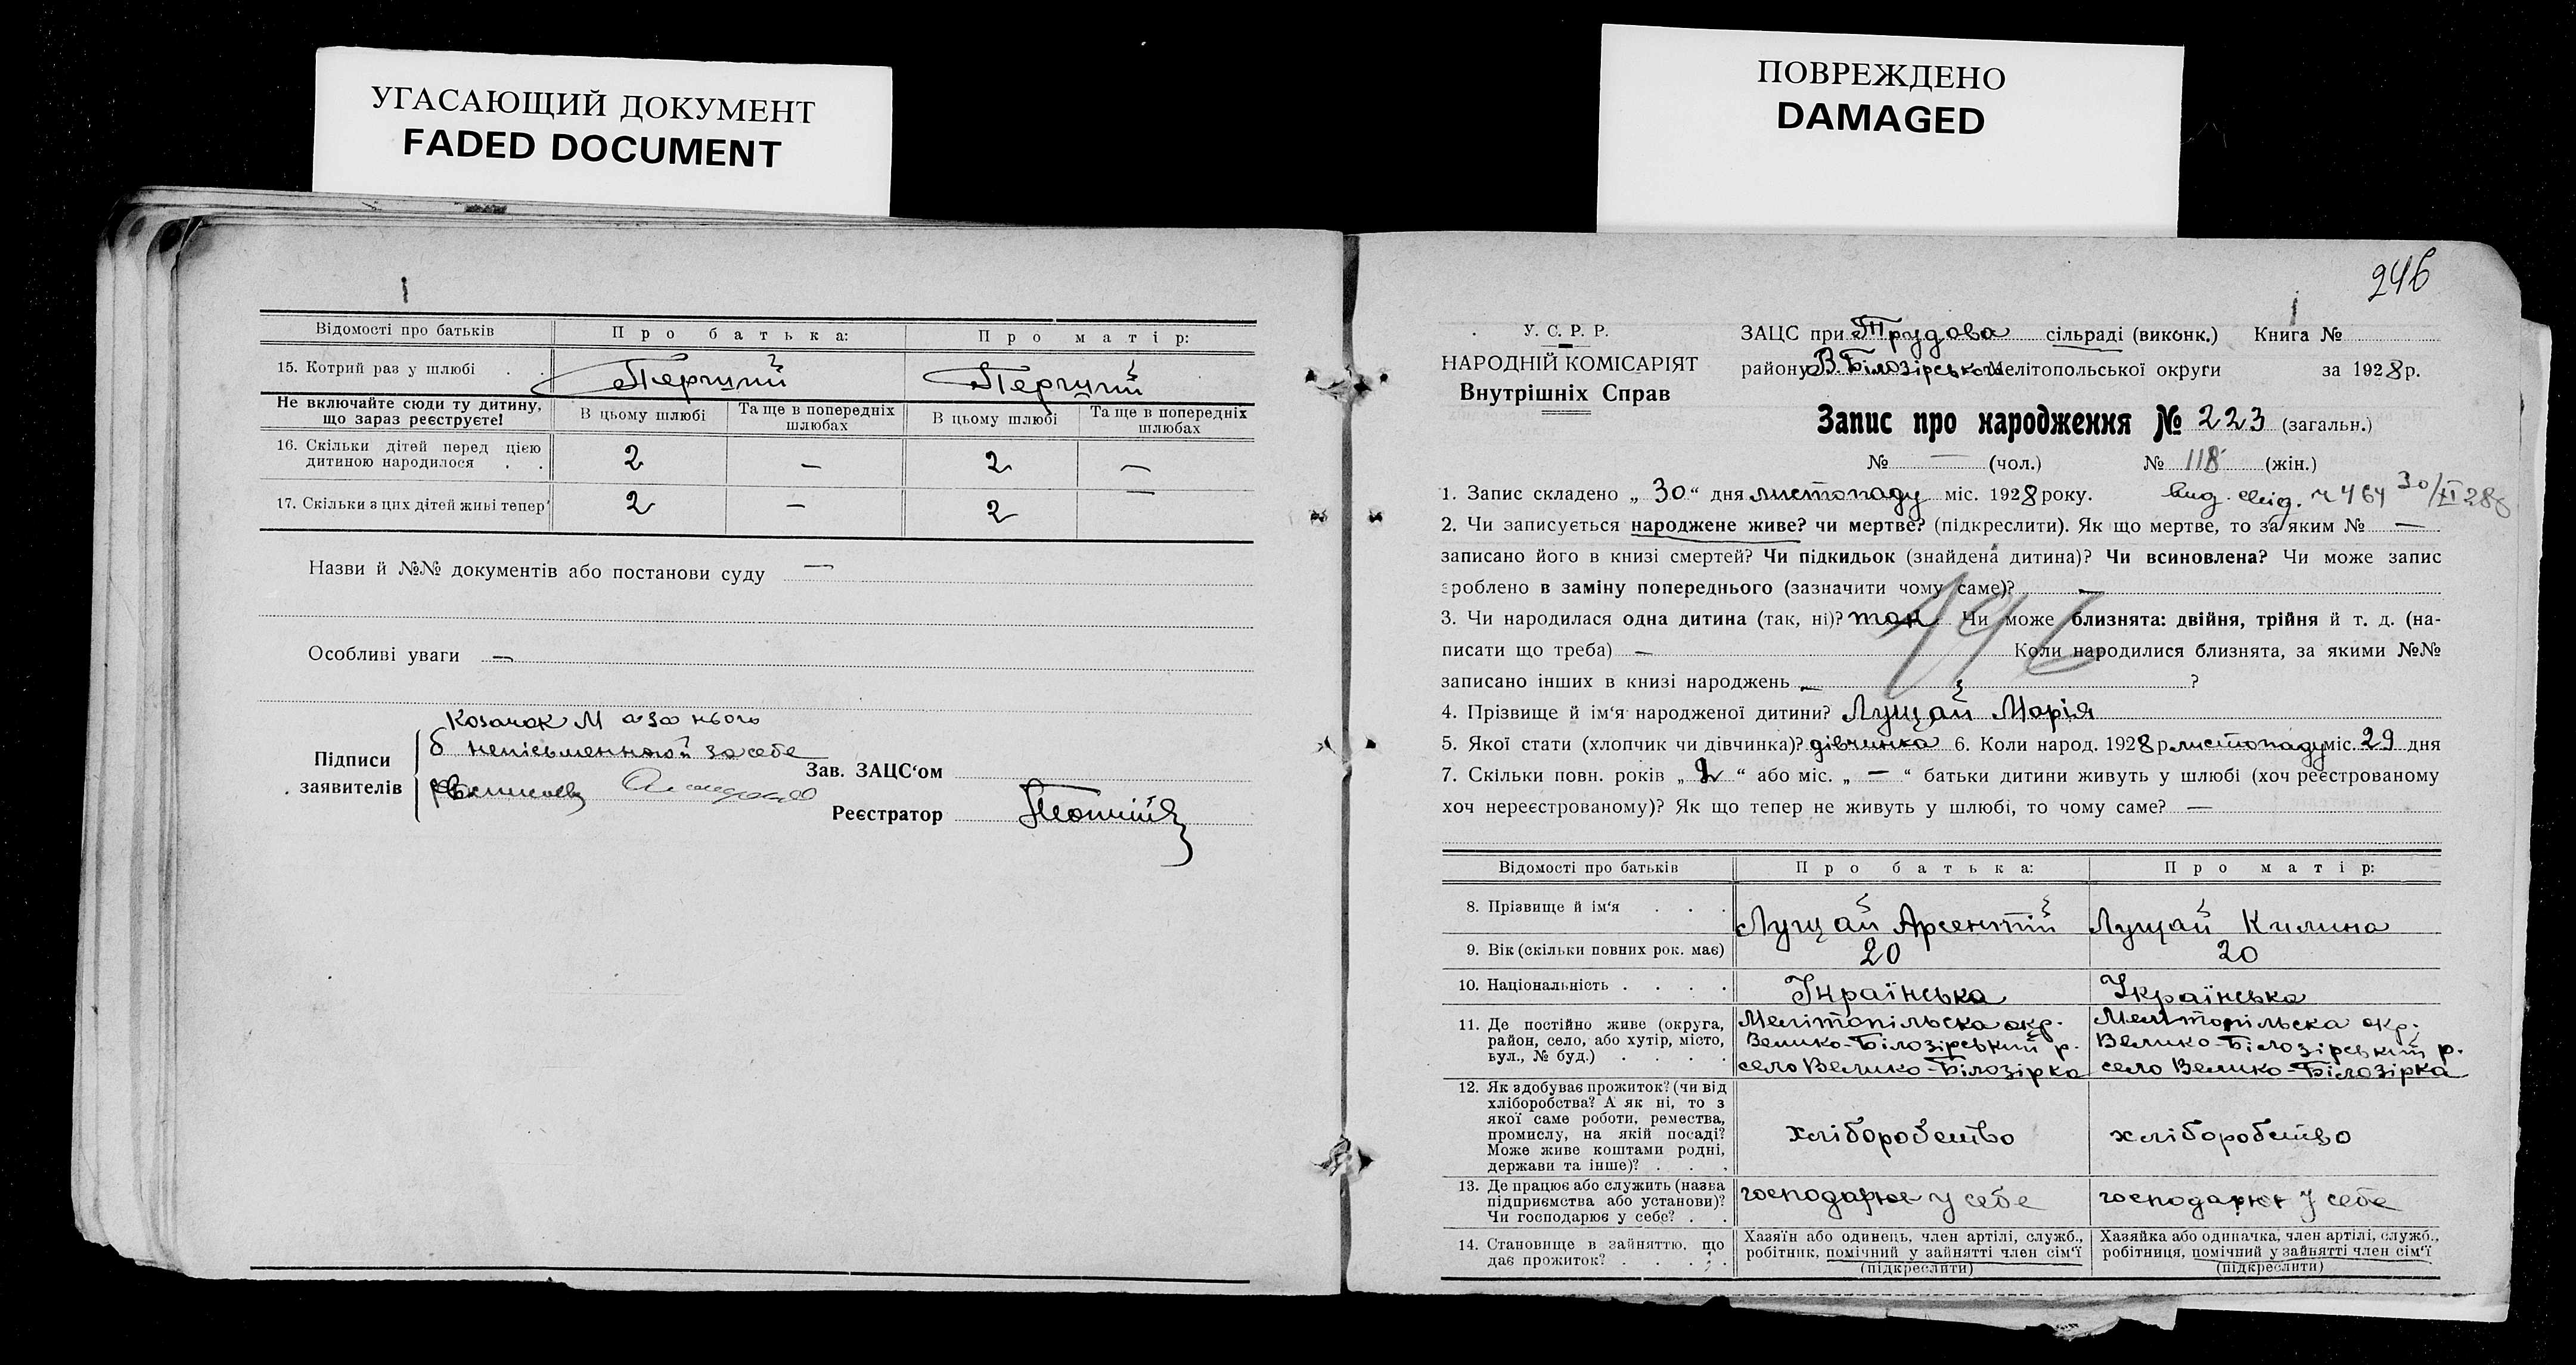 УГАСАЮЩИЙ ДОКУМЕНТ
FADED DOCUMENT
Відомості про батьків
Про батька:
Про матір:
15. Котрий раз у шлюбі . .
Перший
Перший
Не включайте сюди ту дитину, що зараз реєструєте!
В цьому шлюбі
Та ще в попередніх шлюбах
В цьому шлюбі
Та ще в попередніх шлюбах
16. Скільки дітей перед цією
дитиною народилося . .
2 — 2 —
17. Скільки з цих дітей живі тепер
2 — 2 —
Назви й №№ документів або постанови суду —
Особливі уваги —
Козачок М а за нього
б неписьменной за себе
Підписи
заявителів
Зав. ЗАЦС'ом
Реєстратор
ПОВРЕЖДЕНО
DAMAGED
246
У. С. Р. Р.
НАРОДНІЙ КОМІСАРІЯТ
Внутрішніх Справ
ЗАЦС при Трудова сільраді (виконк.) Книга №
району В. Білозірського Мелітопольської округи за 1928 р.
Запис про народження № 223 (загальн.)
№ — (чол.) № 118 (жін.)
1. Запис складено „ 30 “ дня листопаду міс. 1928 року.
вид. свід. № 464 30/XI 28
2. Чи записується народжене живе? чи мертве? (підкреслити). Як що мертве, то за яким № —
записано його в книзі смертей? Чи підкидьок (знайдена дитина)? Чи всиновлена? Чи може запис
зроблено в заміну попереднього (зазначити чому саме)? —
3. Чи народилася одна дитина (так, ні)? так Чи може близнята: двійня, трійня й т. д. (на-
писати що треба) — Коли народилися близнята, за якими №№
записано інших в книзі народжень — ?
4. Прізвище й ім'я народженої дитини? Лущай Марія
5. Якої стати (хлопчик чи дівчинка)? дівчинка 6. Коли народ. 1928 р. листопаду міс. 29 дня
7. Скільки повн. років „ 2 “ або міс. „ — “ батьки дитини живуть у шлюбі (хоч реєстрованому
хоч нереєстрованому)? Як що тепер не живуть у шлюбі, то чому саме? —
Відомості про батьків
Про батька:
Про матір:
8. Прізвище й ім'я . . .
Лущай Арсентій
Лущай Килина
9. Вік (скільки повних рок. має)
20
20
10. Національність . . . .
Українська
Українська
11. Де постійно живе (округа,
район, село, або хутір, місто,
вул., № буд.) . . . .
Мелітопільска окр.
Велико-Білозірський р.
село Велико-Білозірка
Мелітопільска окр.
Велико-Білозірський р.
село Велико-Білозірка
12. Як здобуває прожиток? (чи від
хліборобства? А як ні, то з
якої саме роботи, ремества,
промислу, на якій посаді?
Може живе коштами родні,
держави та інше)? . . .
хліборобство
хліборобство
13. Де працює або служить (назва
підприємства або установи)?
Чи господарює у себе? . .
господарює у себе
господарює у себе
14. Становище в зайняттю, що
дає прожиток? . . . .
Хазяїн або одинець, член артілі, служб.,
робітник, помічний у зайнятті член сім'ї
(підкреслити)
Хазяйка або одиначка, член артілі, служб.,
робітниця, помічний у зайнятті член сім'ї
(підкреслити)